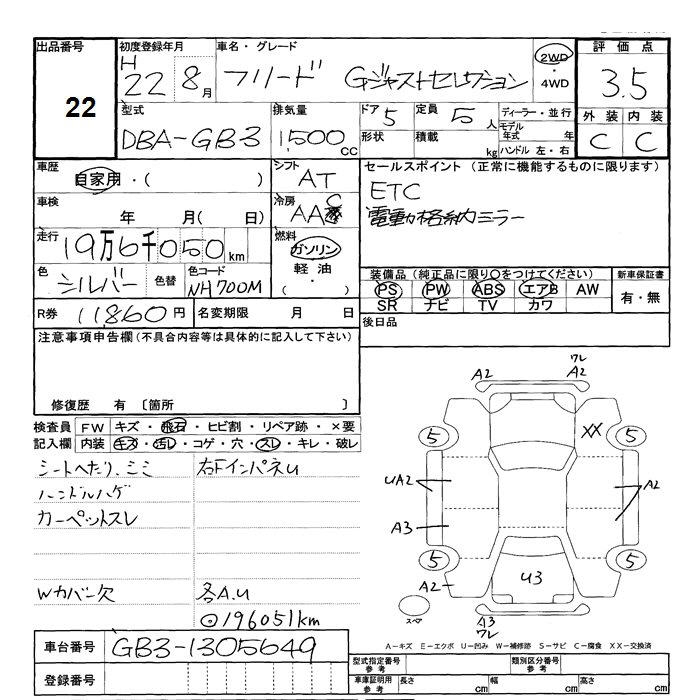 出品番号 初度登録年月 車名・グレード 評価点
22 H 22 8月 フリード Gジャストセレクション 2WD ・ 4WD 3.5
型式 排気量 ドア 5 定員 5人 ディーラー・並行 外装 内装
DBA-GB3 1500cc 形状 積載 kg モデル年式 年 C C
ハンドル 左・右
車歴 シフト セールスポイント (正常に機能するものに限ります)
自家用・( ) AT ETC
車検 冷房 電動格納ミラー
年 月( 日) AAC
走行 燃料
19万6千050km ガソリン
軽油
( ・ )
色 色替 色コード 装備品 (純正品に限り○をつけてください) 新車保証書
シルバー NH700M PS PW ABS エアB AW 有・無
SR ナビ TV カワ
R券 11,860円 名変期限 月 日 後日品
注意事項申告欄(不具合内容等は具体的に記入して下さい)
修復歴 有 〔箇所 〕
検査員 FW キズ・飛石・ヒビ割・リペア跡・×要
記入欄 内装 キズ・汚レ・コゲ・穴・スレ・キレ・破レ
シートへたり、シミ 右FインパネU
ハンドルハゲ
カーペットスレ
Wカバー欠 各A.U
196051km
車台番号 GB3-1305649
登録番号
A2 ワレ A2
5 XX 5
UA2 A2
A3
5 5
A2 U3
スペア A3 ワレ
A-キズ E-エクボ U-凹み W-補修跡 S-サビ C-腐食 XX-交換済
型式指定番号 参考 類別区分番号 参考
車庫証明用 参考 長さ cm 幅 cm 高さ cm